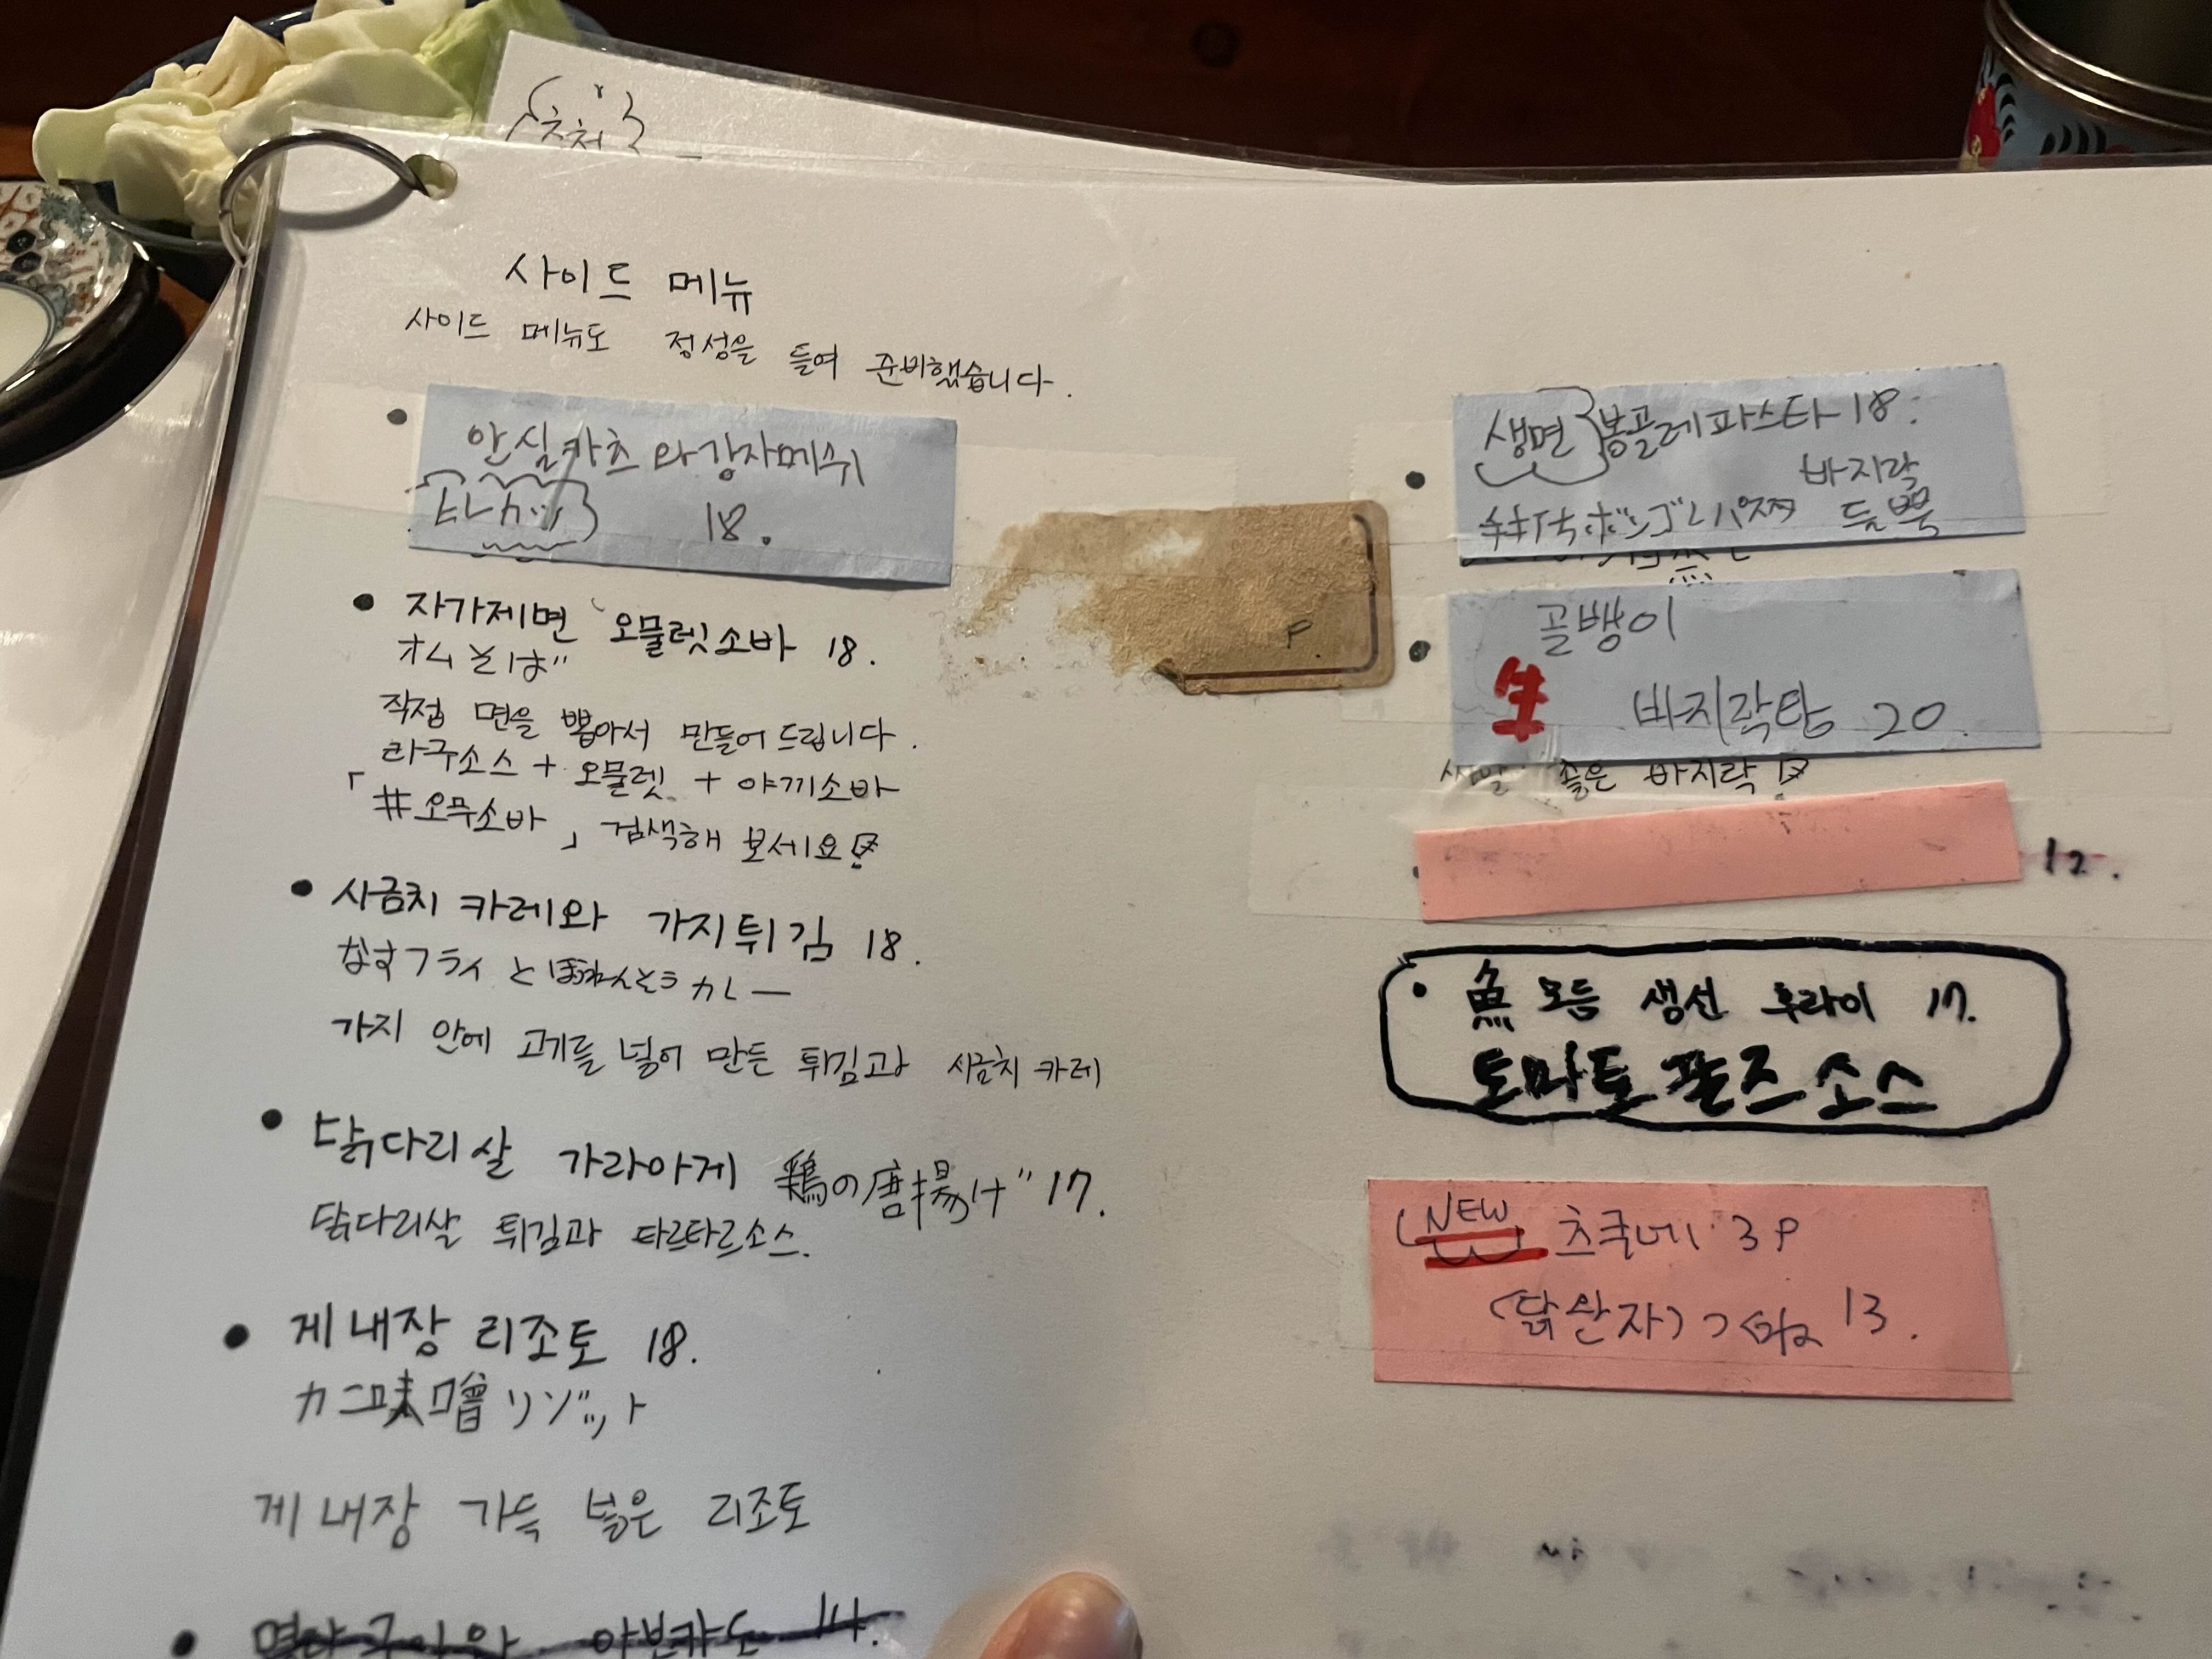 추천
사이드 메뉴
사이드 메뉴도 정성을 들여 준비했습니다.
안심카츠와 감자메쉬
ヒレカツ 18.
자가제면 오믈렛소바 18.
オムそば
직접 면을 뽑아서 만들어 드립니다.
라구소스 + 오믈렛 + 야끼소바
「#오무소바」 검색해 보세요!
사금치 카레와 가지튀김 18.
なすフライ と ほうれんそう カレー
가지 안에 고기를 넣어 만든 튀김과 시금치 카레
닭다리살 가라아게 鶏の唐揚げ 17.
닭다리살 튀김과 타르타르소스.
게내장 리조토 18.
カニ味噌リゾット
게내장 가득 넣은 리조토
명란구이와 아보카도 14.
생면 봉골레파스타 18.
바지락
ボンゴレパスタ 듬뿍
골뱅이
生 바지락탕 20.
좋은 바지락!
12.
魚 모듬 생선 후라이 17.
토마토 폰즈 소스
NEW 츠쿠네 3P
(닭완자) つくね 13.
P.